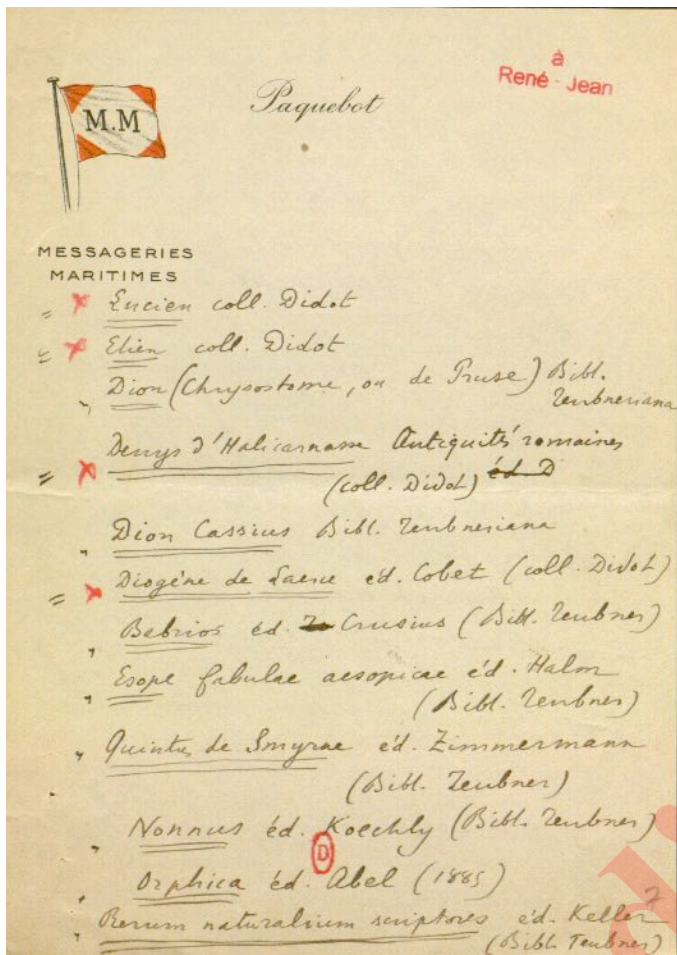 à
René-Jean
M.M
Paquebot
MESSAGERIES
MARITIMES
= x Lucien coll. Didot
= x Elien coll. Didot
" Dion (Chrysostome, ou de Pruse) Bibl.
Teubneriana
Denys d'Halicarnasse Antiquités romaines
= x (coll. Didot) éd. D
" Dion Cassius Bibl. Teubneriana
= x Diogène de Laerce éd. Cobet (coll. Didot)
" Babrios éd. Crusius (Bibl. Teubner)
" Esope fabulae aesopicae éd. Halm
(Bibl. Teubner)
" Quintus de Smyrne éd. Zimmermann
(Bibl. Teubner)
" Nonnus éd. Koechly (Bibl. Teubner)
D
" Orphica éd. Abel (1885)
" Rerum naturalium scriptores éd. Keller
(Bibl. Teubner)